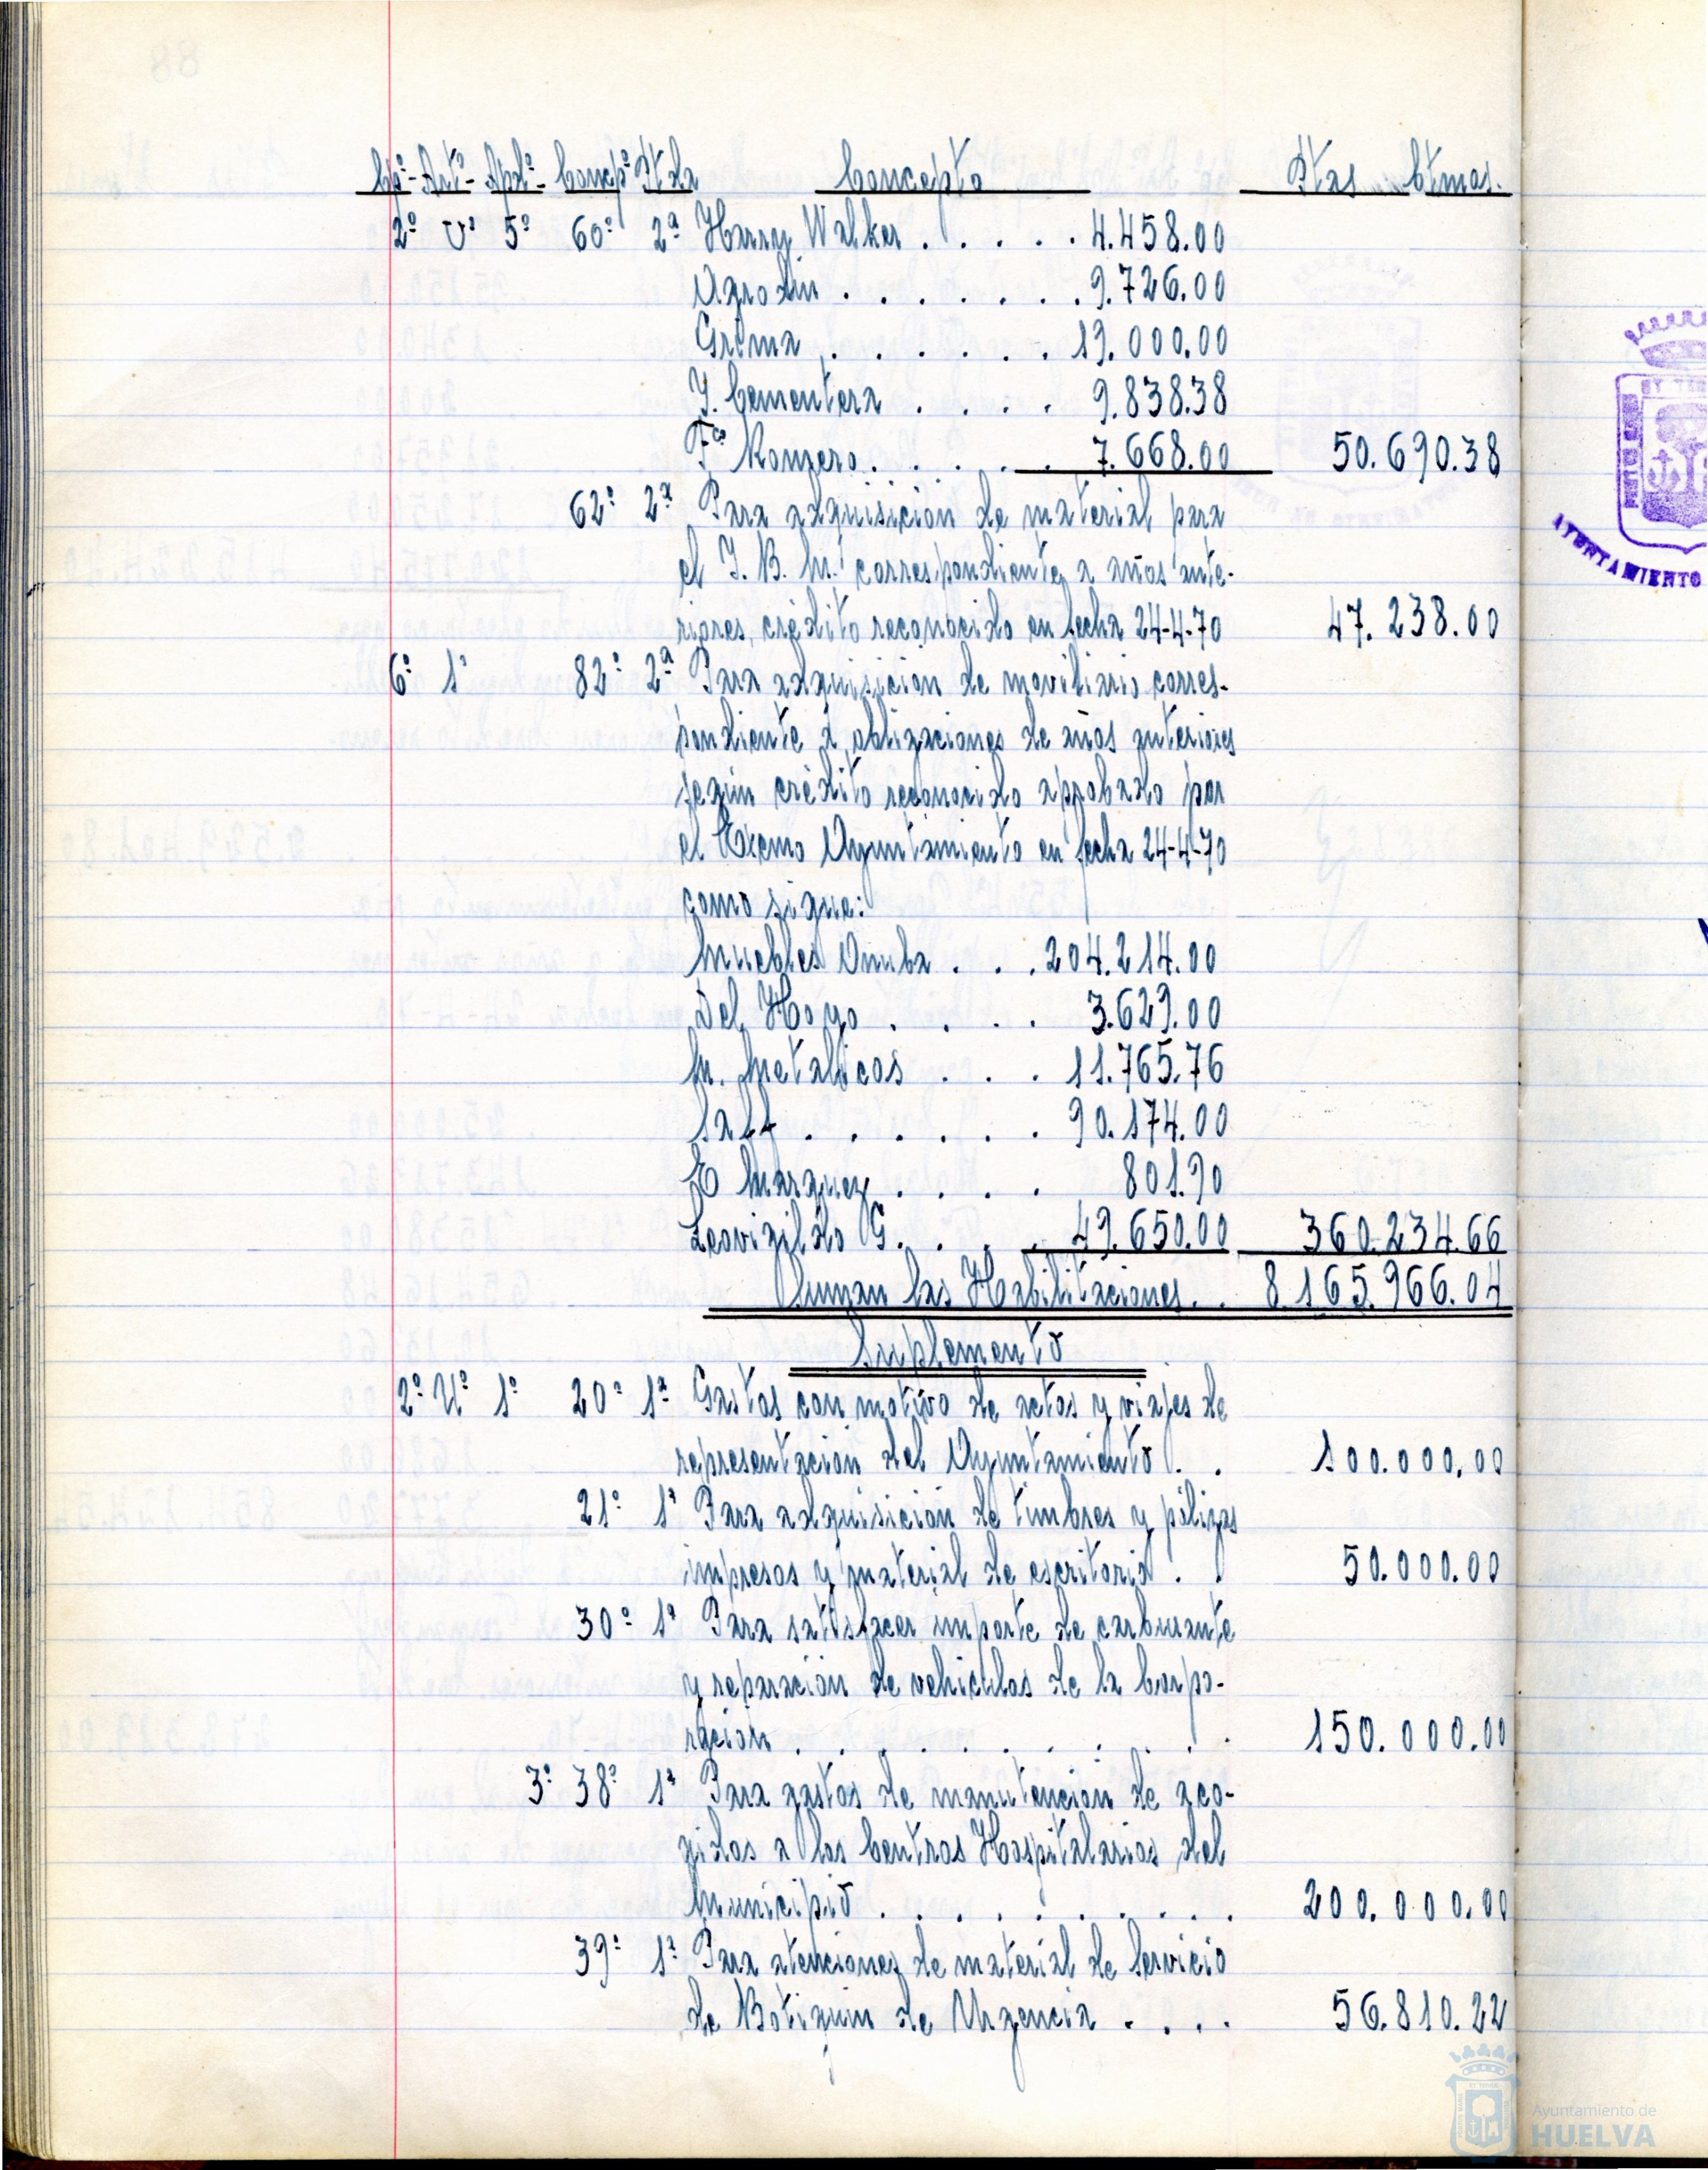 Cpº- Artº- Apdº- Concpº Ptda Concepto Ptas Ctmos.
2º Uº 5º 60º 2ª Harry Walker . . . . . 4.458.00
Agrodin . . . . . . . 9.726.00
Grima . . . . . . . 19.000.00
I. Cementera . . . . 9.838.38
Fco Romero . . . . . 7.668.00 50.690.38
62º 2ª Para adquisición de material para
el I. B. M. correspondiente a años ante-
riores, crédito reconocido en fecha 24-4-70 47.238.00
6º 1º 82º 2ª Para adquisición de moviliario corres-
pondiente a obligaciones de años anteriores
según crédito reconocido aprobado por
el Excmo Ayuntamiento en fecha 24-4-70
como sigue:
Muebles Onuba . . . 204.214.00
Del Hoyo . . . . 3.629.00
M. Metalicos . . . 11.765.76
. . . . . . 90.174.00
E Marquez . . . . 801.90
Leovigildo G. . . . 49.650.00 360.234.66
Suman las Habilitaciones . . 8.165.966.04
Suplemento
2º Uº 1º 20º 1ª Gastos con motivo de actos y viajes de
representación del Ayuntamiento . . 100.000.00
21º 1ª Para adquisición de timbres y pólizas
impresos y material de escritorio . . 50.000.00
30º 1ª Para satisfacer importe de carburante
y reparación de vehiculos de la Corpo-
ración . . . . . . . . . . 150.000.00
3º 38º 1ª Para gastos de manutención de aco-
gidos a los Centros Hospitalarios del
Municipio . . . . . . . . . 200.000.00
39º 1ª Para atenciones de material de Servicio
de Botiquin de Urgencia . . . . 56.810.22
AYUNTAMIENTO
Ayuntamiento de
HUELVA